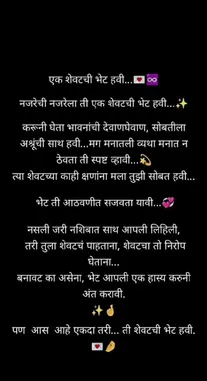 एक शेवटची भेट हवी...💌♾️
नजरेची नजरेला ती एक शेवटची भेट हवी...✨
करूनी घेता भावनांची देवाणघेवाण, सोबतीला
अश्रूंची साथ हवी...मग मनातली व्यथा मनात न
ठेवता ती स्पष्ट व्हावी...💫
त्या शेवटच्या काही क्षणांना मला तुझी सोबत हवी...
भेट ती आठवणीत सजवता यावी...💞
नसली जरी नशिबात साथ आपली लिहिली,
तरी तुला शेवटचं पाहताना, शेवटचा तो निरोप
घेताना...
बनावट का असेना, भेट आपली एक हास्य करुनी
अंत करावी.
✨🤞
पण आस आहे एकदा तरी... ती शेवटची भेट हवी.
💌🤌